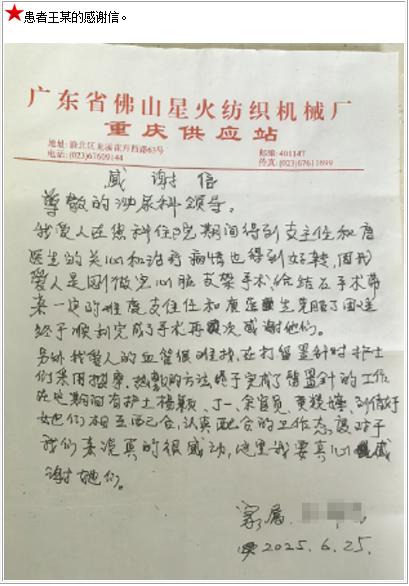 患者王某的感谢信。
广东省佛山星火纺织机械厂
重庆供应站
地址: 渝北区龙溪花卉西路63号
邮编: 401147
电话: (023)67609144
传真: (023)67611699
感谢信
尊敬的泌尿科领导。
我爱人在您科住院期间得到支主任和唐
医生的关心和治疗病情也得到好转，因我
爱人是刚做完心脏支架手术给结石手术带
来一定的难度支住任和唐医生克服了困难
终于顺利完成了手术再次感谢他们。
另外我爱人的血管很难找，在打留置针时护士
们采用按摩，热敷的方法终于完成了留置针的工作
在这期间有护士杨颖、丁一、余官员、更
她们相互配合，认真配合的工作态度对于
我们来说真的很感动，这里我要真心感
谢她们。
家属
2025.6.25.